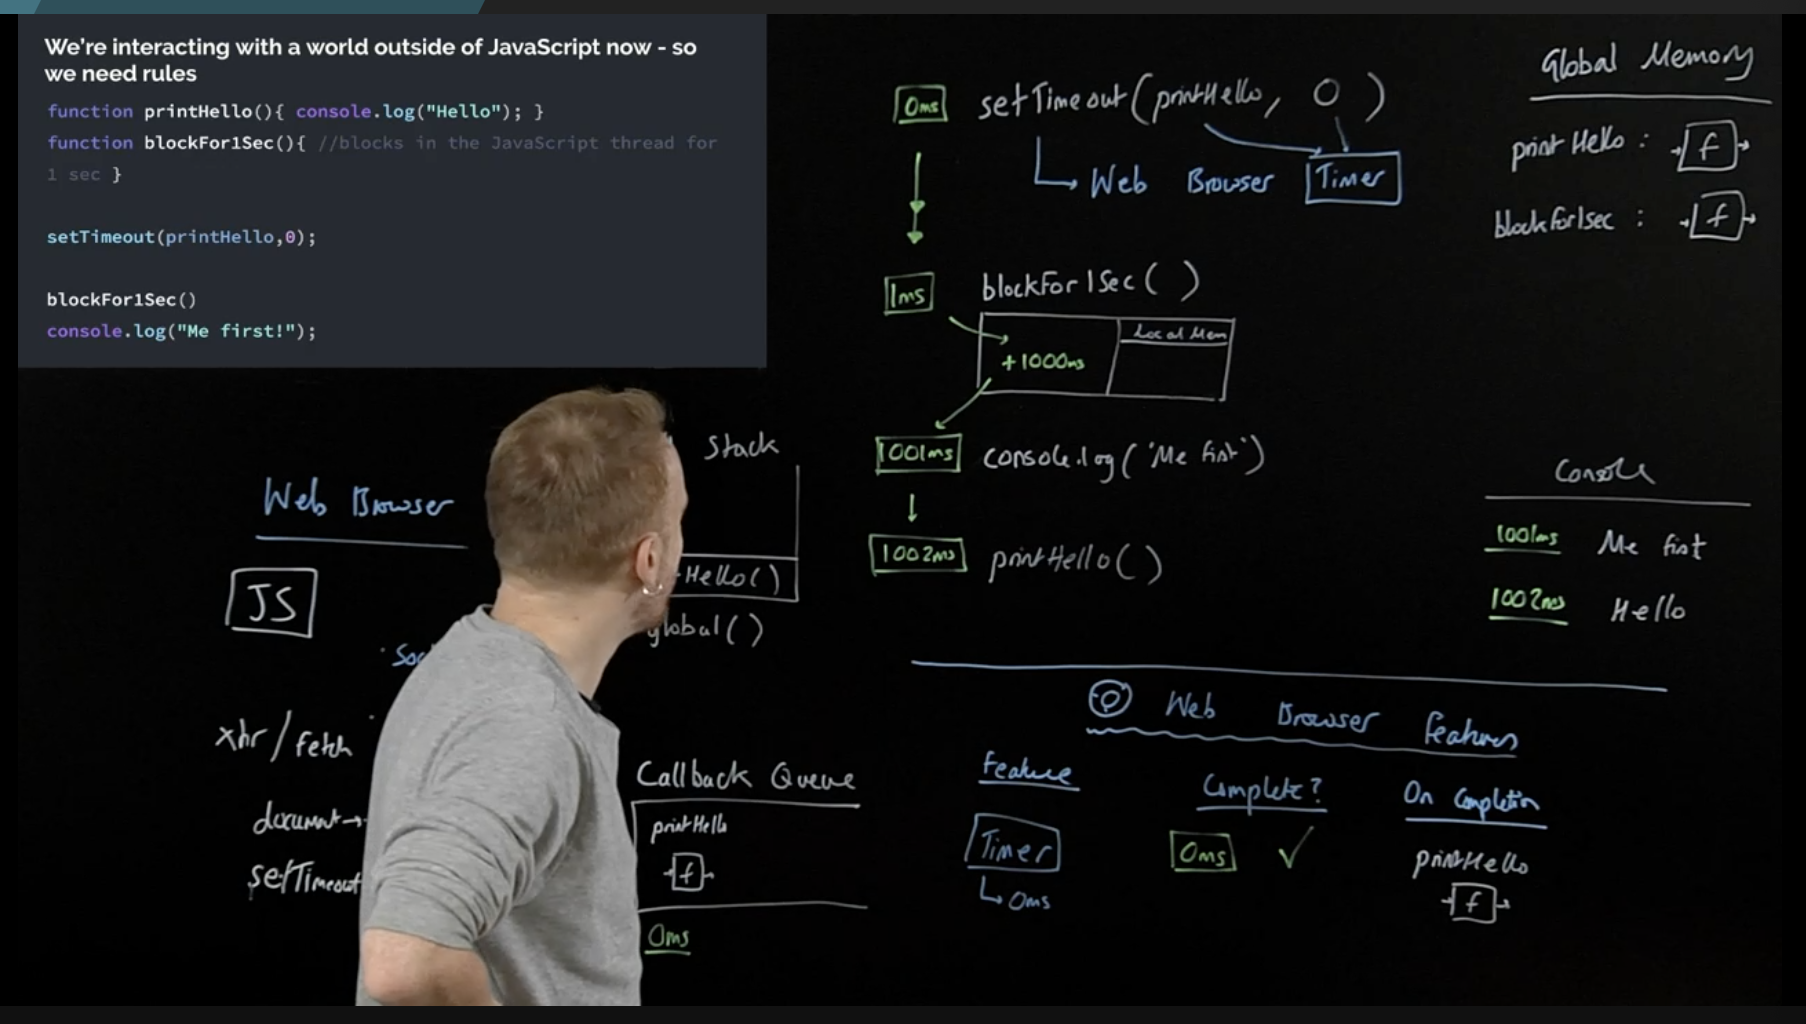 We're interacting with a world outside of JavaScript now - so
we need rules
function printHello(){ console.log("Hello"); }
function blockFor1Sec(){ //blocks in the JavaScript thread for
1 sec }
setTimeout(printHello,0);
blockFor1Sec()
console.log("Me first!");
0ms setTimeout(printHello, 0)
Web Browser Timer
1ms blockFor1Sec()
Local Mem
+1000ms
1001ms console.log('Me first')
1002ms printHello()
Global Memory
printHello : f
blockFor1Sec : f
Console
1001ms Me first
1002ms Hello
Stack
Hello()
global()
Web Browser
JS
xhr/fetch
document
setTimeout
Callback Queue
printHello
f
0ms
Web Browser Features
Feature Complete? On Completion
Timer 0ms ✓ printHello
0ms f